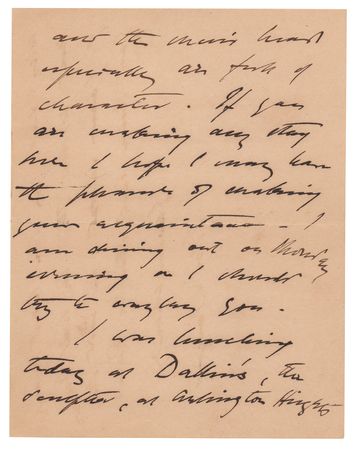 and the men's heads
especially are full of
character. If you
are making any stay
here I hope I may have
the pleasure of making
your acquaintance - I
am dining out on Monday
evening or I should
try to waylay you.
I was lunching
today at Dallin's, the
sculptor, at Arlington Heights